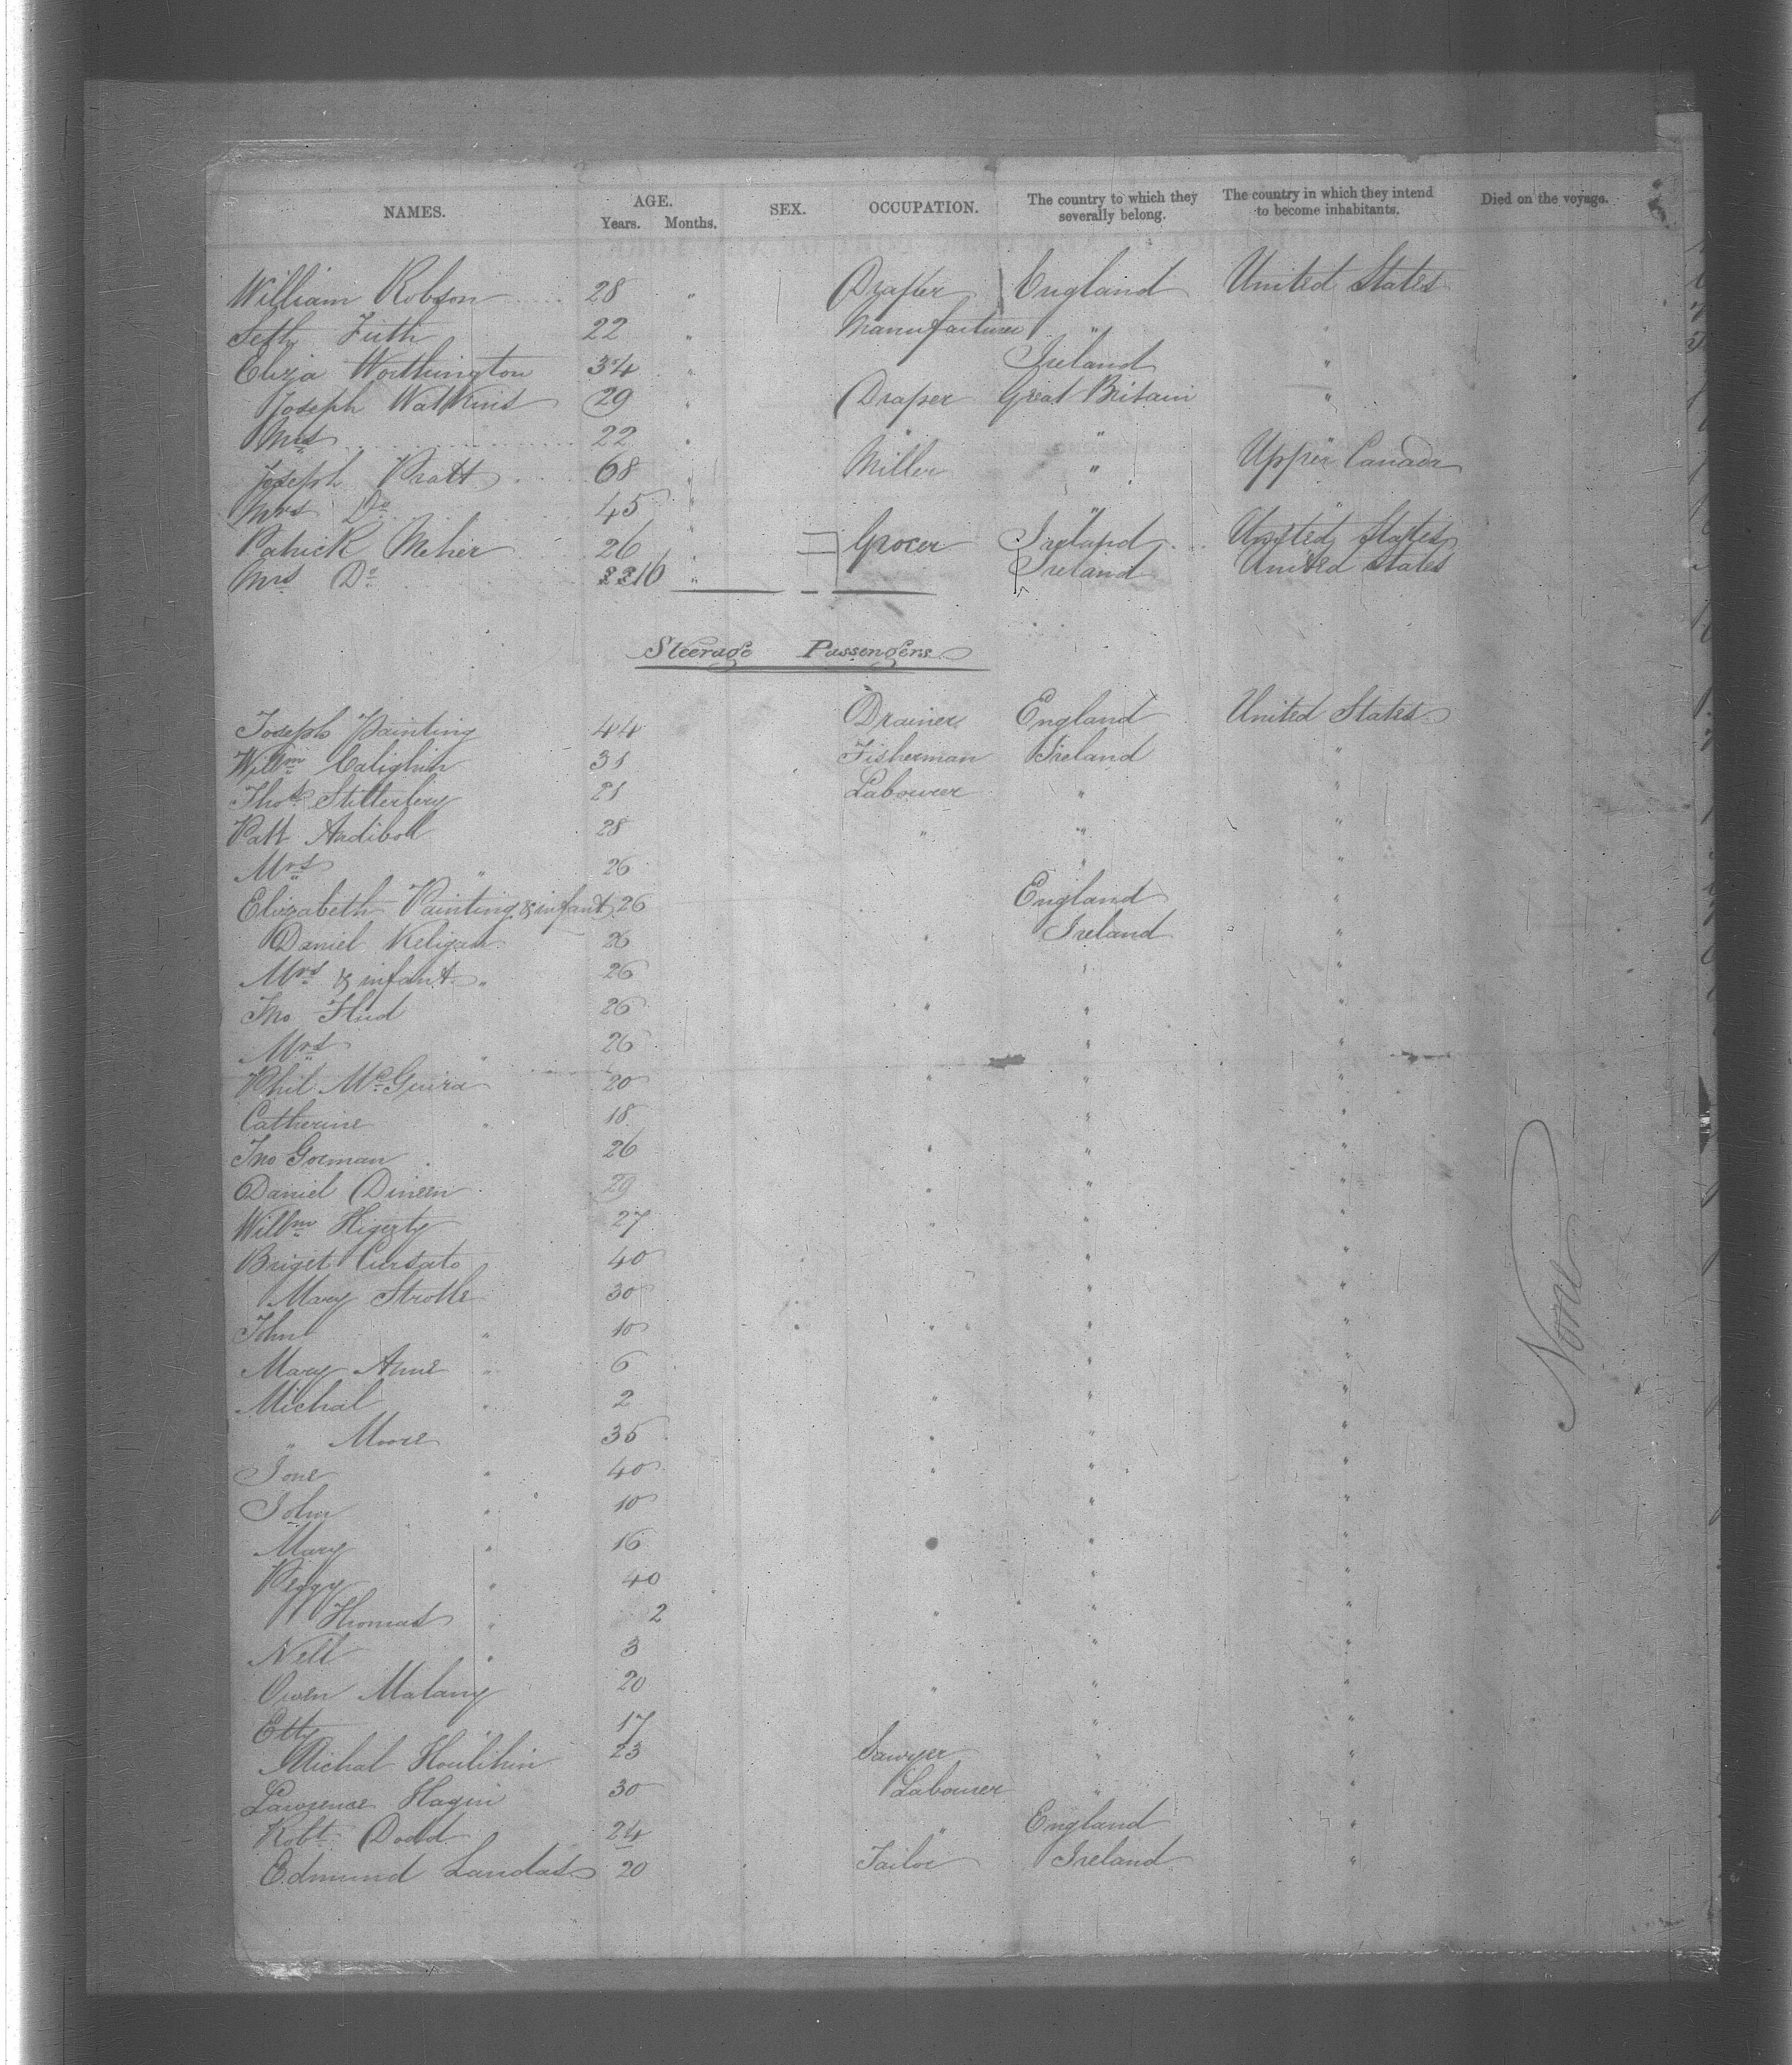 NAMES. AGE. Years. Months. SEX. OCCUPATION. The country to which they severally belong. The country in which they intend to become inhabitants. Died on the voyage.
William Robson 28 " Draper England United States
Seth Firth 22 " Manufacturer " "
Eliza Worthington 34 " Ireland "
Joseph Watkins 29 " Draper Great Britain "
Mrs 22 " " "
Joseph Pratt 68 " Miller " Upper Canada
Mrs Do 45 " " "
Patrick Meher 26 " Grocer Ireland United States
Mrs Do 16 " Ireland United States
Steerage Passengers
Joseph Painting 44 Drainer England United States
Willm Calighin 31 Fisherman Ireland "
Thos Sitterlery 21 Labourer " "
Patt Andiboll 28 " " "
Mrs " 26 " "
Elizabeth Painting & infant 26 England "
Daniel Keligan 26 " Ireland "
Mrs & infant " 26 " "
Jno Flud 26 " " "
Mrs " 26 " "
Phil McGuira 20 " " "
Catherine " 18 " "
Jno Gorman 26 " " "
Daniel Dineen 29 " " "
Willm Higerty 27 " " "
Briget Cursato 40 " "
Mary Strolle 30 " "
John " 10 " " "
Mary Anne " 6 " "
Michal " 2 " " "
" Moore 35 " " "
Jone " 40 " " "
John " 10 " "
Mary " 16 " "
Peggy " 40 " "
Thomas " 2 " " "
Nell " 3 " "
Owen Malany 20 " " "
Etty " 17 " "
Michal Houlihin 23 Sawyer " "
Lawrence Hagin 30 Labourer " "
Robt Dodd 24 " England "
Edmund Landas 20 Tailor Ireland "
None